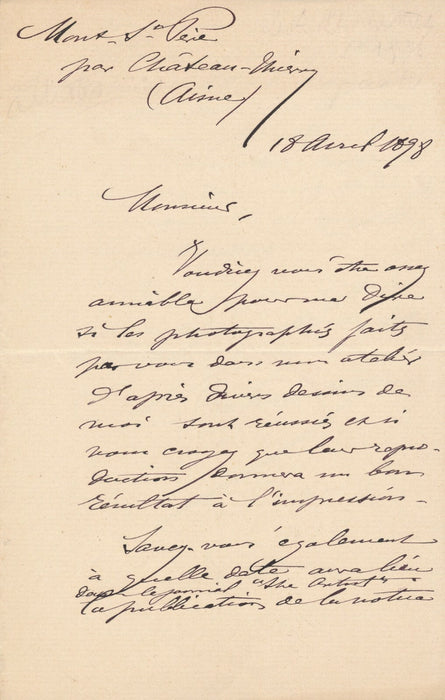 Mont-St-Père
par Château-Thierry
(Aisne)
18 Avril 1898
Monsieur,
Voudriez vous être assez
aimable pour me dire
si les photographies faites
par vous dans mon atelier
d'après divers dessins de
moi sont réussies et si
vous croyez que leur repro-
duction donnera un bon
résultat à l'impression.
Savez-vous également
à quelle date aura lieu
dans le journal "the Artist"
la publication de la notice